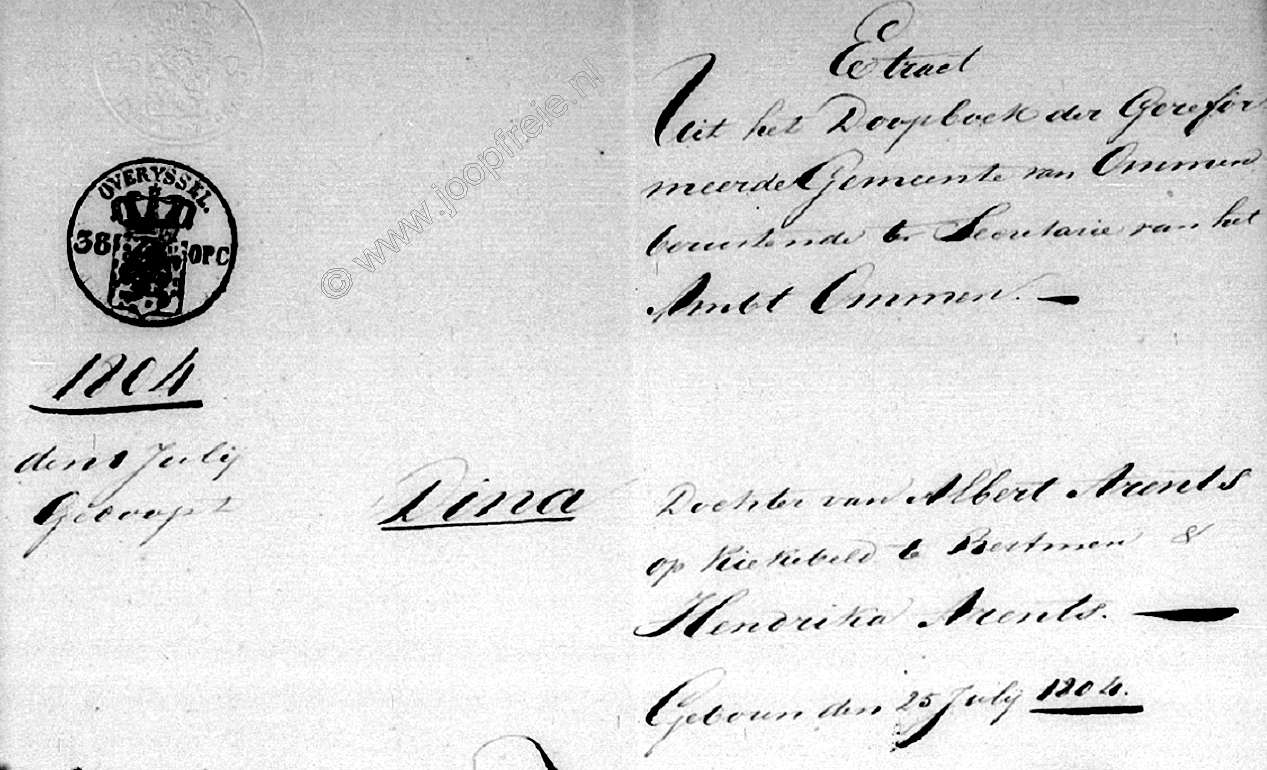 Etract
Uit het Doopboek der Gerefor
meerde Gemeente van Ommen
berustende te Secretarie van het
Ambt Ommen.
OVERYSSEL.
38 OPC
1804
den 1 Julij
Gedoopt
Dina
Dochter van Albert Arents
op Kiekebeld te Bestmen &
Hendrika Arents.
Geboren den 25 Julij 1804.
© www.joopfreie.nl